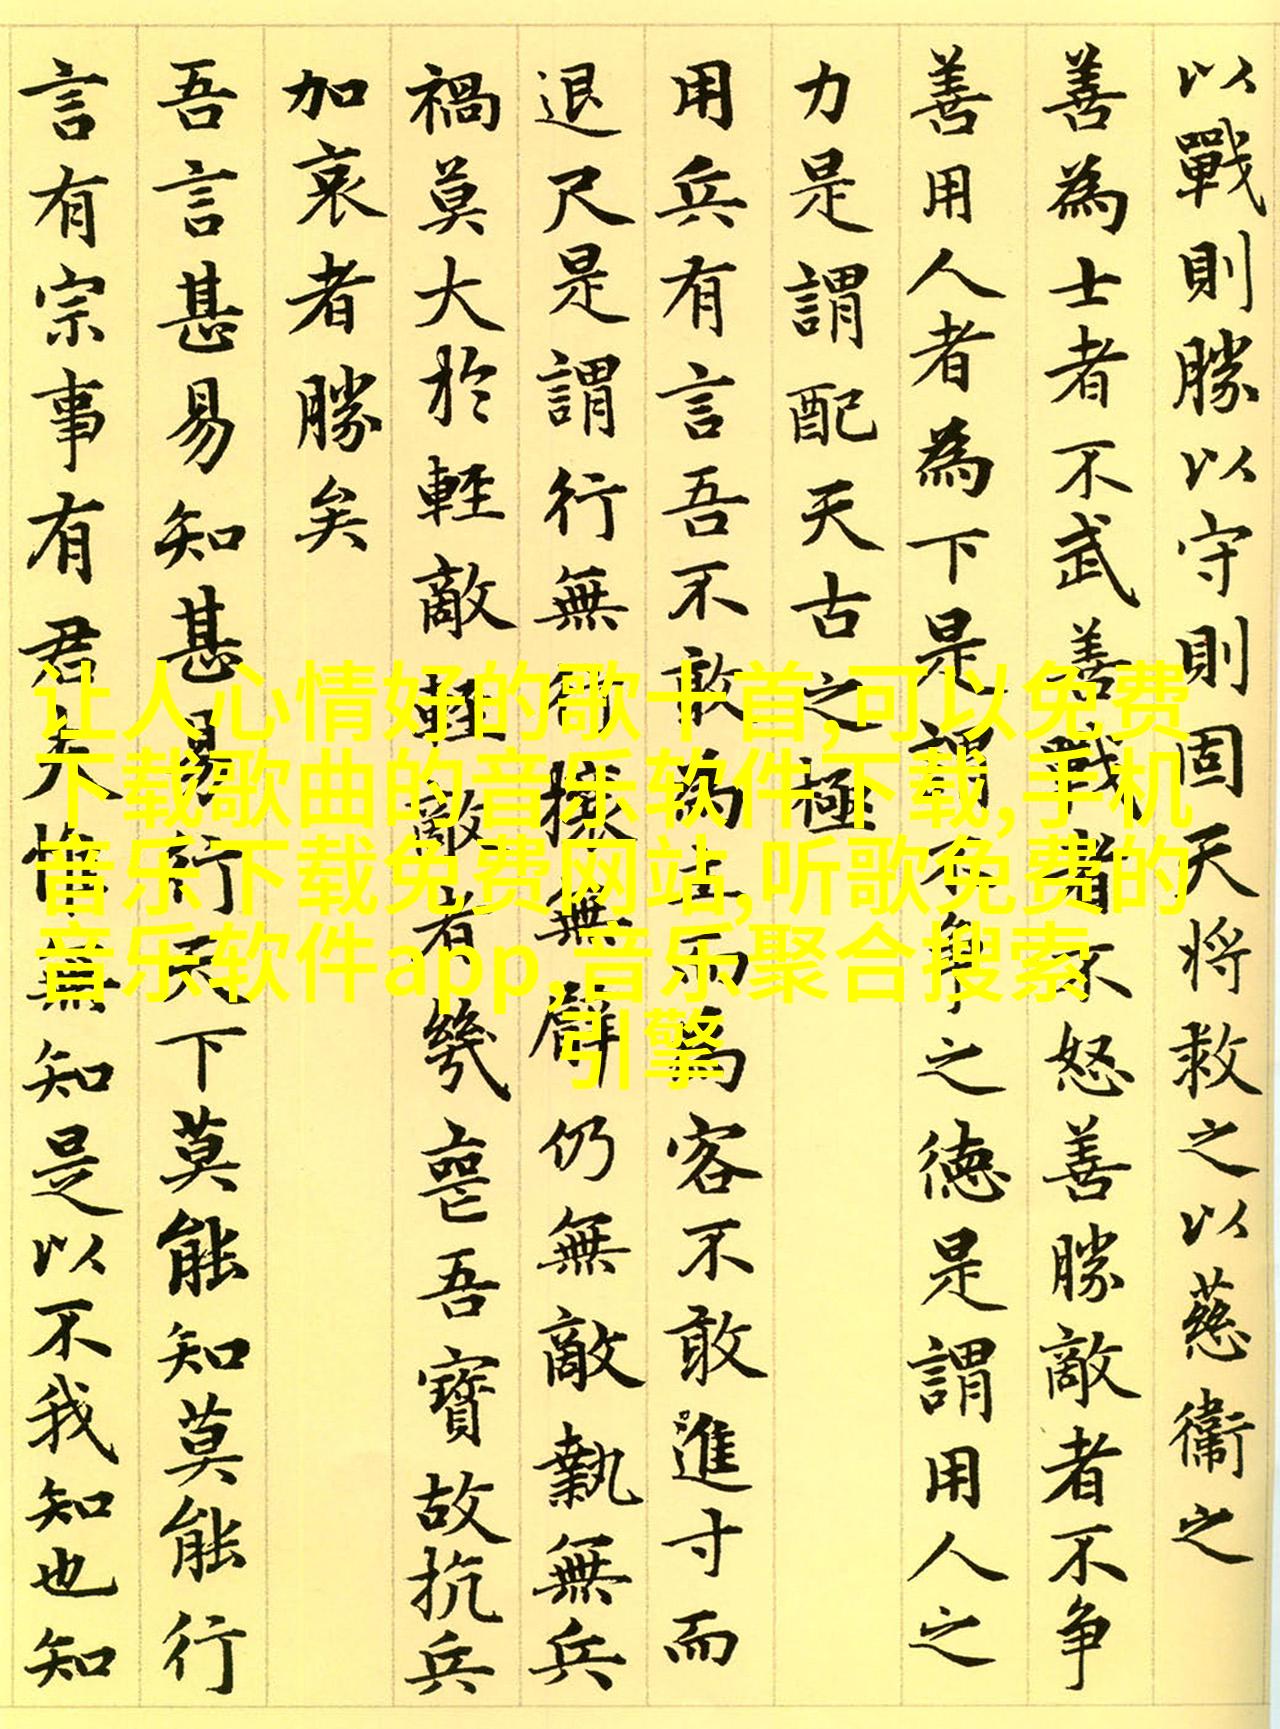 以戰則勝以守則固天將救之以慈衞之
善為士者不武善戰者不怒善勝敵者不争
善用人者為下是謂不争之德是謂用人之
力是謂配天古之極
用兵有言吾不敢為主而為客不敢進寸而
退尺是謂行無行攘無臂仍無敵執無兵
禍莫大於輕敵輕敵者幾喪吾寳故抗兵
加哀者勝矣
吾言甚易知甚易行天下莫能知莫能行
言有宗事有君夫惟無知是以不我知也知
让人心情好的歌十首,可以免费
下载歌曲的音乐软件下载,手机
音乐下载免费网站,听歌免费的
音乐软件app,音乐聚合搜索
引擎